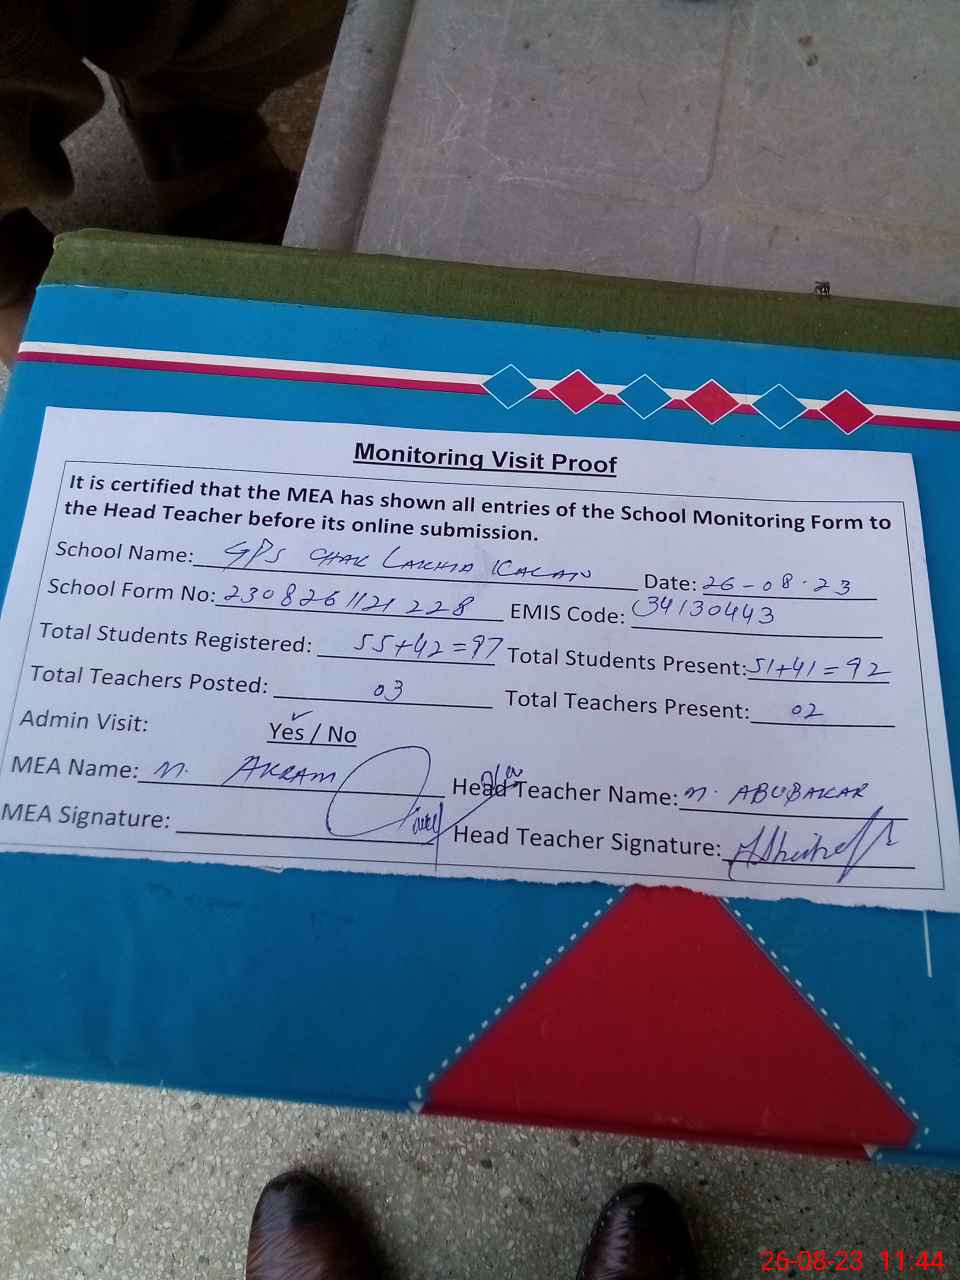 Monitoring Visit Proof
It is certified that the MEA has shown all entries of the School Monitoring Form to
the Head Teacher before its online submission.
School Name: GPS CHAK LAKHIA KALAN Date: 26-08-23
School Form No: 230826 1121 228 EMIS Code: 34130443
Total Students Registered: 55+42=97 Total Students Present: 51+41=92
Total Teachers Posted: 03 Total Teachers Present: 02
Admin Visit: Yes / No
MEA Name: M. AKRAM Head Teacher Name: M. ABUBAKAR
MEA Signature: Head Teacher Signature:
26-08-23 11:44